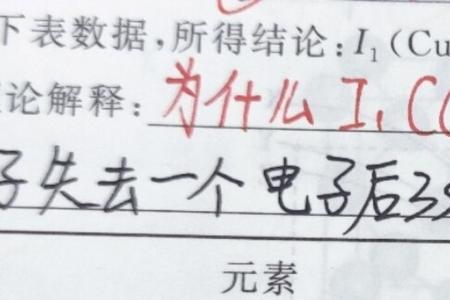 下表数据,所得结论:I₁(Cu
论解释:为什么 I₁ C
子失去一个电子后3
元素